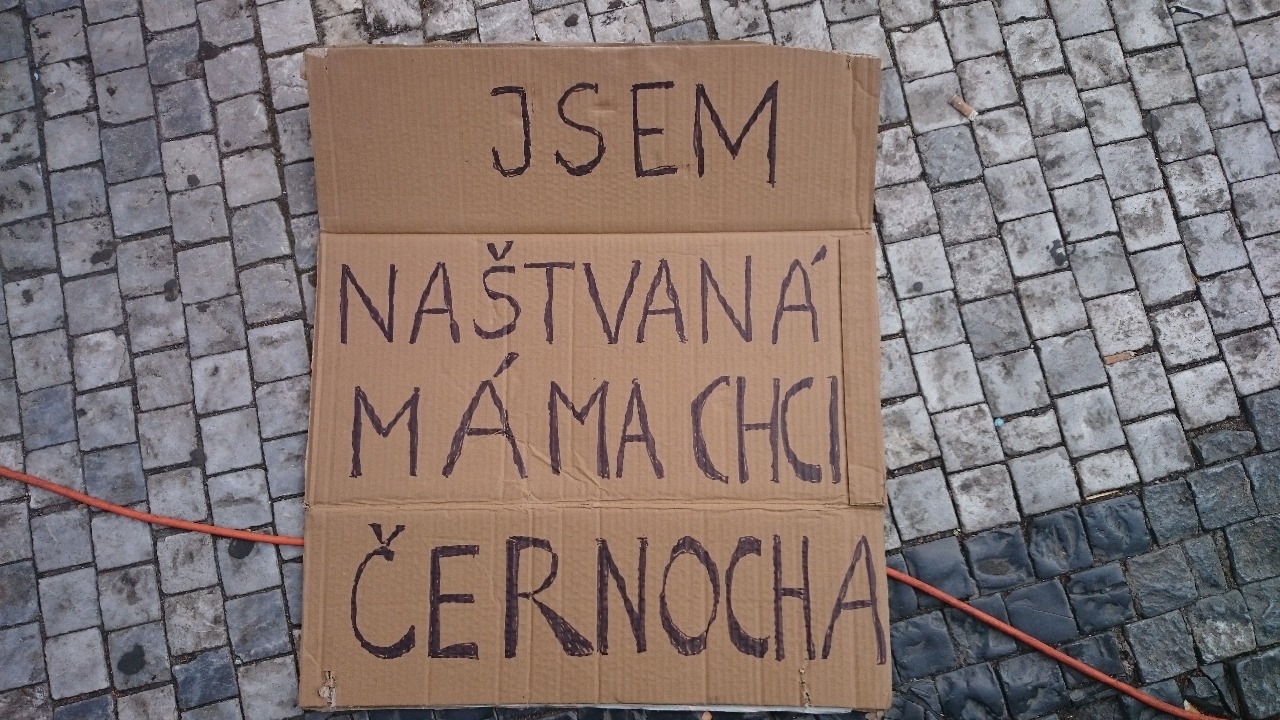 JSEM
NAŠTVANÁ
MÁMA CHCI
ČERNOCHA